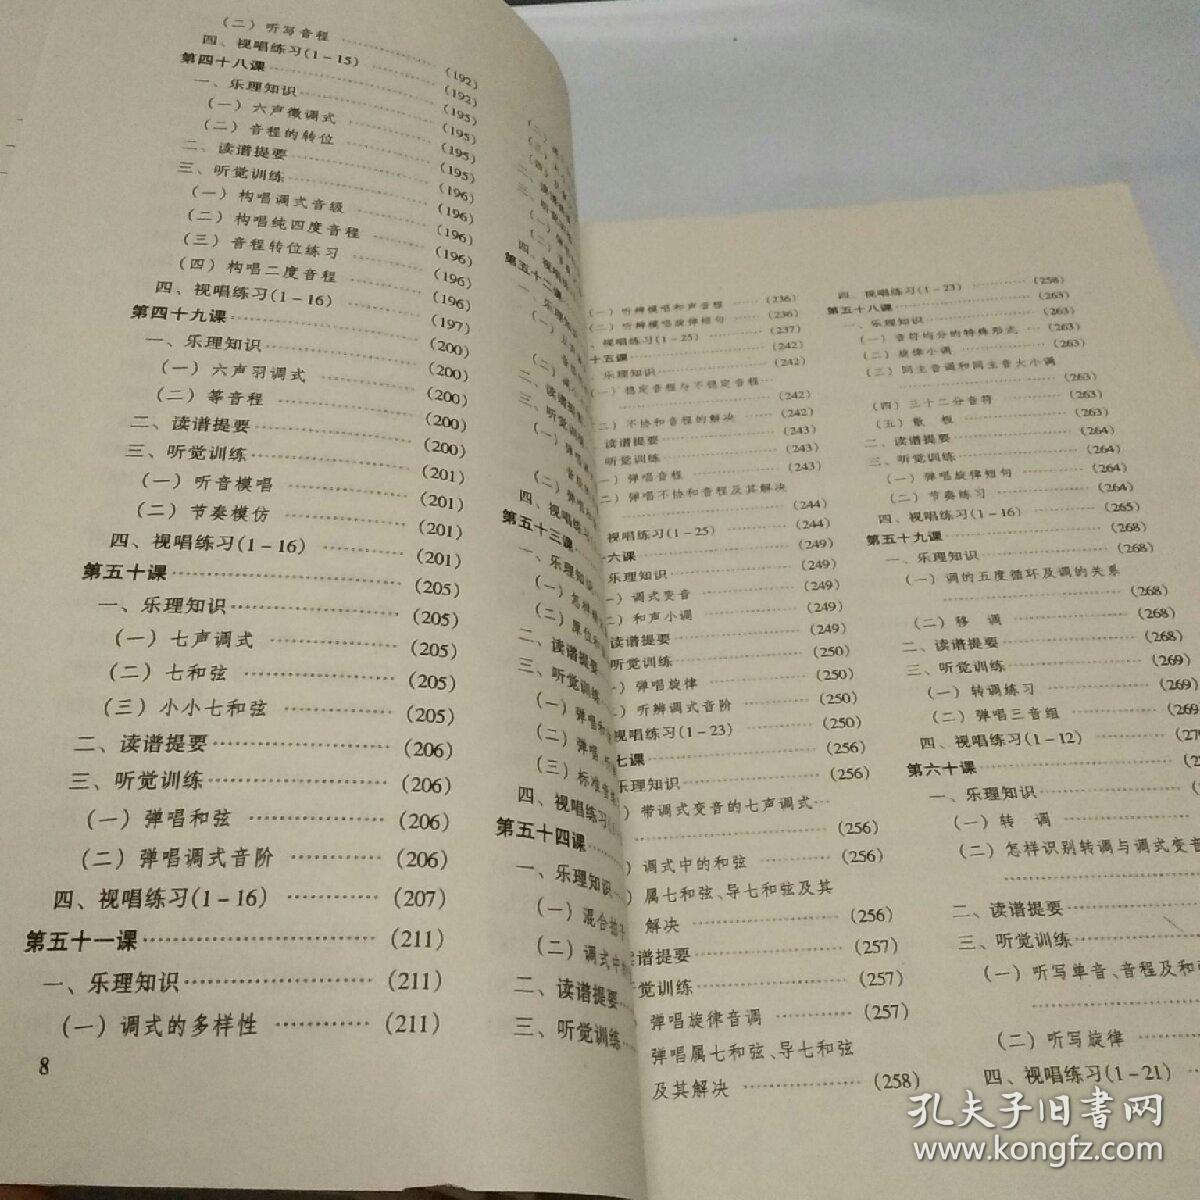 （二）听写音程 ……………（192）
四、视唱练习(1－15) ……………（192）
第四十八课……………（195）
一、乐理知识……………（195）
（一）六声徵调式 ……………（195）
（二）音程的转位 ……………（195）
二、读谱提要……………（196）
三、听觉训练……………（196）
（一）构唱调式音级 ……………（196）
（二）构唱纯四度音程 ……………（196）
（三）音程转位练习 ……………（196）
（四）构唱二度音程 ……………（196）
四、视唱练习(1－16) ……………（197）
第四十九课……………（200）
一、乐理知识……………（200）
（一）六声羽调式 ……………（200）
（二）等音程 ……………（200）
二、读谱提要……………（200）
三、听觉训练……………（201）
（一）听音模唱 ……………（201）
（二）节奏模仿 ……………（201）
四、视唱练习(1－16) ……………（201）
第五十课……………（205）
一、乐理知识……………（205）
（一）七声调式 ……………（205）
（二）七和弦 ……………（205）
（三）小小七和弦 ……………（205）
二、读谱提要……………（206）
三、听觉训练……………（206）
（一）弹唱和弦 ……………（206）
（二）弹唱调式音阶 ……………（206）
四、视唱练习(1－16) ……………（207）
第五十一课……………（211）
一、乐理知识……………（211）
（一）调式的多样性 ……………（211）
8
二、读谱
三、听觉训
四、视唱练习
第五十二课
一、乐理知识
（一）
（二）
二、读谱提要
三、听觉训
（一）弹唱
（二）弹唱
四、视唱练习
第五十三课
一、乐理知识
（一）怎样
（二）原位
二、读谱提要
三、听觉训练
（一）弹唱
（二）弹唱
（三）标准
四、视唱练习
第五十四课
一、乐理知识
（一）混合拍子
（二）调式中
二、读谱提要
三、听觉训练
（一）听辨模唱和声音程 ……（236）
（二）听辨模唱旋律短句 ……（236）
视唱练习(1－25) ……（237）
十五课 ……（242）
乐理知识……（242）
（一）稳定音程与不稳定音程…
……（242）
（二）不协和音程的解决 ……（242）
读谱提要……（243）
听觉训练……（243）
（一）弹唱音程 ……（243）
（二）弹唱不协和音程及其解决
……（244）
视唱练习(1－25) ……（244）
十六课……（249）
乐理知识……（249）
（一）调式变音 ……（249）
（二）和声小调 ……（249）
读谱提要……（249）
听觉训练……（250）
（一）弹唱旋律 ……（250）
（二）听辨调式音阶 ……（250）
视唱练习(1－23) ……（250）
七课……（256）
乐理知识……（256）
）带调式变音的七声调式…
……（256）
）调式中的和弦 ……（256）
）属七和弦、导七和弦及其
解决 ……（256）
读谱提要……（257）
听觉训练……（257）
弹唱旋律音调 ……（257）
弹唱属七和弦、导七和弦
及其解决 ……（258）
四、视唱练习(1－23) ……（258）
第五十八课……（263）
一、乐理知识……（263）
（一）音符均分的特殊形式 …（263）
（二）旋律小调 ……（263）
（三）同主音调和同主音大小调
……（263）
（四）三十二分音符 ……（263）
（五）散　板 ……（263）
二、读谱提要……（264）
三、听觉训练……（264）
（一）弹唱旋律短句 ……（264）
（二）节奏练习 ……（264）
四、视唱练习(1－16) ……（265）
第五十九课……（268）
一、乐理知识……（268）
（一）调的五度循环及调的关系
……（268）
（二）移　调 ……（268）
二、读谱提要……（268）
三、听觉训练……（269）
（一）转调练习 ……（269）
（二）弹唱三音组 ……（269
四、视唱练习(1－12) ……（27
第六十课……
一、乐理知识……
（一）转　调 ……
（二）怎样识别转调与调式变音
……
二、读谱提要……
三、听觉训练……
（一）听写单音、音程及和弦
……
（二）听写旋律 ……
四、视唱练习(1－21) …
孔夫子旧书网
www.kongfz.com